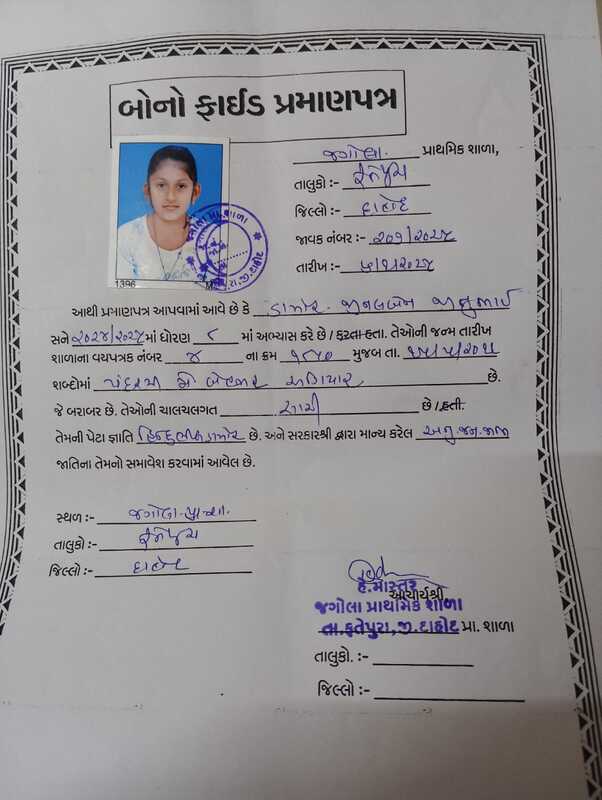 બોનો ફાઈડ પ્રમાણપત્ર
જગોલા પ્રાથમિક શાળા,
તાલુકો :- ફતેપુરા
જિલ્લો :- દાહોદ
જાવક નંબર :- ૨૦૧/૨૦૨૫
તારીખ :-
જગોલા પ્રા. શાળા
1396
આથી પ્રમાણપત્ર આપવામાં આવે છે કે ડામોર
સને ૨૦૨૪/૨૦૨૫માં ધોરણ ૮ માં અભ્યાસ કરે છે / કરતા હતા. તેઓની જન્મ તારીખ
શાળાના વયપત્રક નંબર ૪ ના ક્રમ મુજબ તા.
શબ્દોમાં પંદરમી મે બેહજાર અગિયાર છે.
જે બરાબર છે. તેઓની ચાલચલગત સારી છે / હતી.
તેમની પેટા જ્ઞાતિ હિન્દુ ડામોર છે. અને સરકારશ્રી દ્વારા માન્ય કરેલ અનુ.જન.જાતિ
જાતિના તેમનો સમાવેશ કરવામાં આવેલ છે.
સ્થળ :- જગોલા
તાલુકો :- ફતેપુરા
જિલ્લો :- દાહોદ
હે.માસ્તર
આચાર્યશ્રી
જગોલા પ્રાથમિક શાળા
તા.ફતેપુરા,જી.દાહોદ પ્રા. શાળા
તાલુકો. :-
જિલ્લો :-